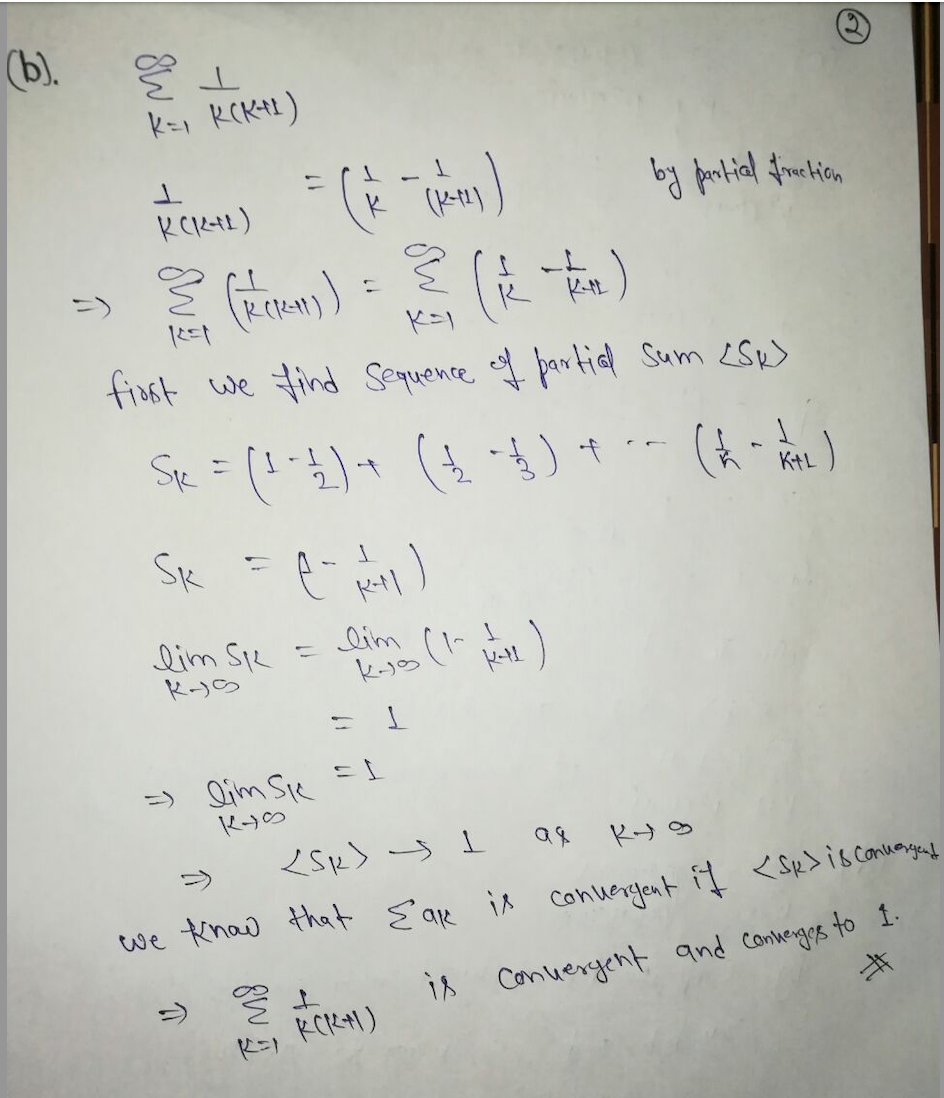 2
(b). ∞ Σ k=1 1/K(K+1)
1/K(K+1) = (1/K - 1/(K+1)) by partial fraction
=> ∞ Σ K=1 (1/K(K+1)) = ∞ Σ K=1 (1/K - 1/K+1)
first we find sequence of partial sum <SK>
SK = (1 - 1/2) + (1/2 - 1/3) + --- (1/K - 1/K+1)
SK = (1 - 1/K+1)
lim K→∞ SK = lim K→∞ (1 - 1/K+1)
= 1
=> lim K→∞ SK = 1
=> <SK> → 1 as K→∞
we know that Σ aK is convergent if <SK> is convergent
=> ∞ Σ K=1 1/K(K+1) is convergent and converges to 1.